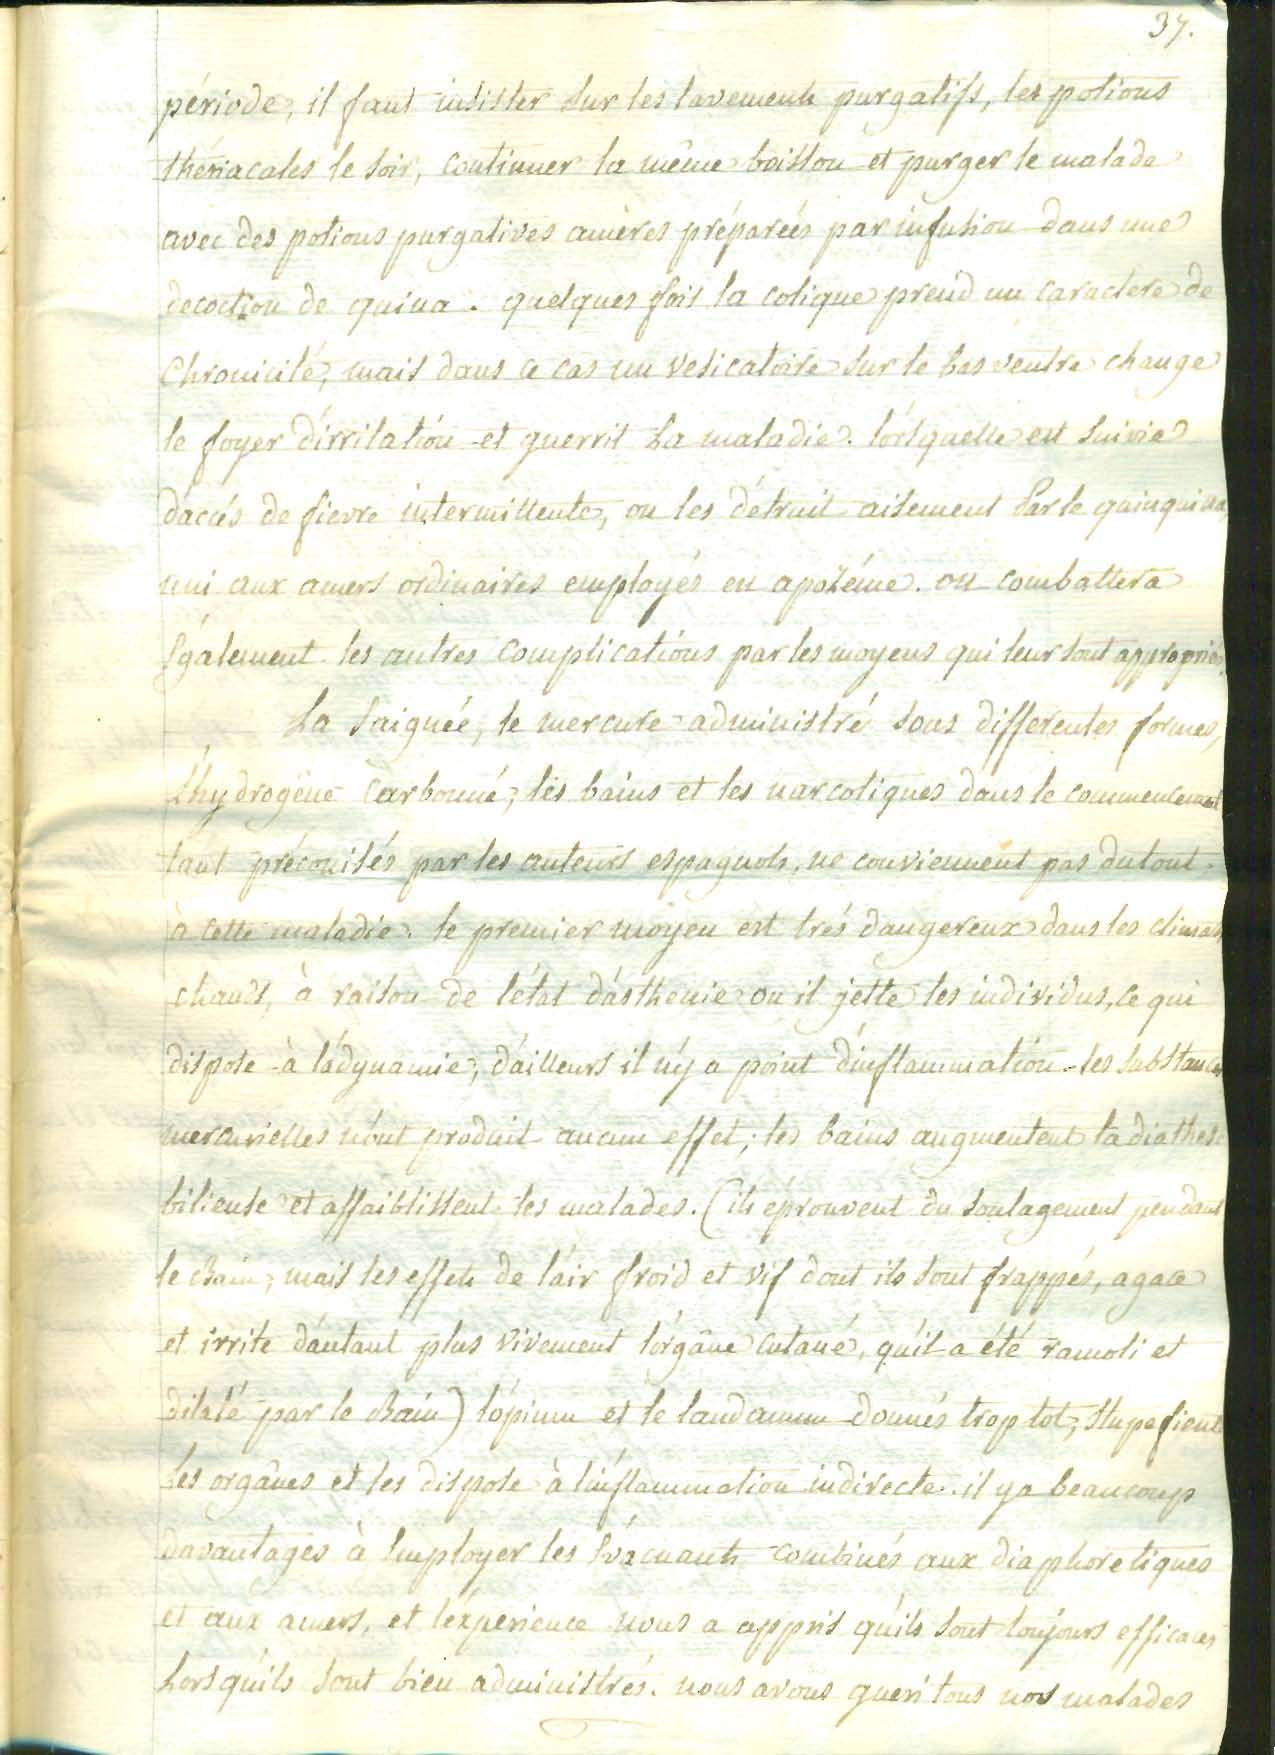 37.
période, il faut insister sur les lavements purgatifs, les potions
thériacales le soir, continuer la même boisson et purger le malade
avec des potions purgatives amères préparées par infusion dans une
decoction de quina. quelques fois la colique prend un caractere de
Chronicité, mais dans ce cas un vesicatoire sur le bas ventre change
le foyer d'irritation et guerrit la maladie. lorsquelle est suivie
d'accés de fievre intermittente, on les détruit aisement par le quinquina,
uni aux amers ordinaires employés en apozéme. on combattera
Également les autres complications par les moyens qui leur sont appropriés.
La Saignée, le mercure administré sous differentes formes,
L'hydrogène carbonné, les bains et les narcotiques dans le commencement
tant préconisés par les auteurs espagnols, ne conviennent pas du tout
à cette maladie. le premier moyen est trés dangereux dans les climats
chauds, à raison de l'état d'asthenie ou il jette les individus, ce qui
dispose à l'adynamie, d'ailleurs il n'y a point d'inflammation. les substances
mercurielles n'ont produit aucun effet; les bains augmentent la diathese
bilieuse et affaiblissent les malades. (ils éprouvent du soulagement pendant
le Bain; mais les effets de l'air froid et vif dont ils sont frappés, agace
et irrite d'autant plus vivement l'orgâne cutané, qu'il a été ramoli et
dilaté par le Bain) l'opium et le laudanum donnés trop tot, stupefient
Les orgânes et les dispose à l'inflammation indirecte. il y a beaucoup
d'avantages à Employer les Évacuants combinés aux diaphoretiques
et aux amers, et l'éxperience nous a appris qu'ils sont toujours efficaces
Lorsqu'ils sont bien administrés. nous avons gueri tous nos malades